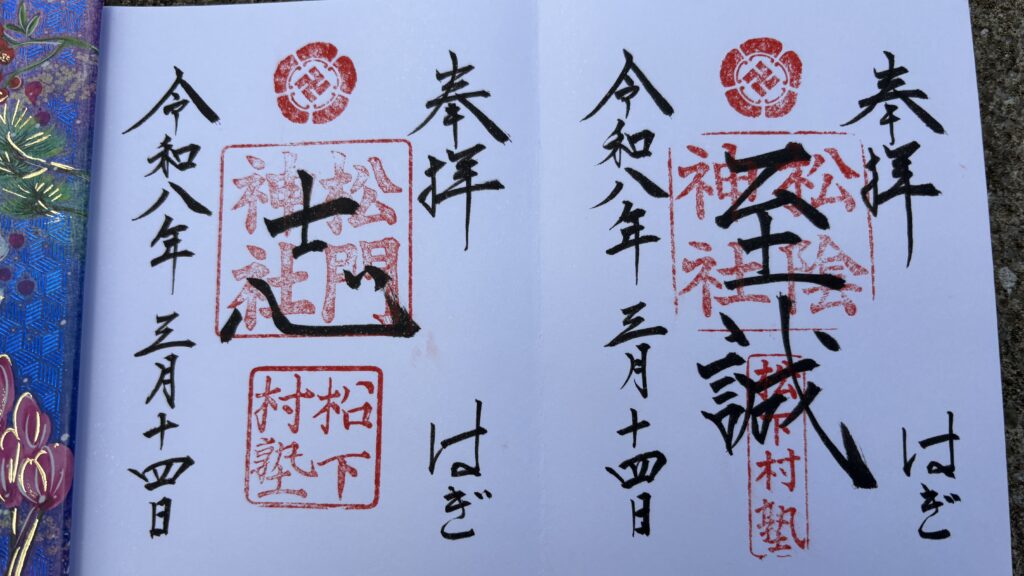 奉拝 はぎ
松陰
神社
至誠
松下村塾
令和八年 三月十四日
奉拝 はぎ
松門
神社
志
松下
村塾
令和八年 三月十四日